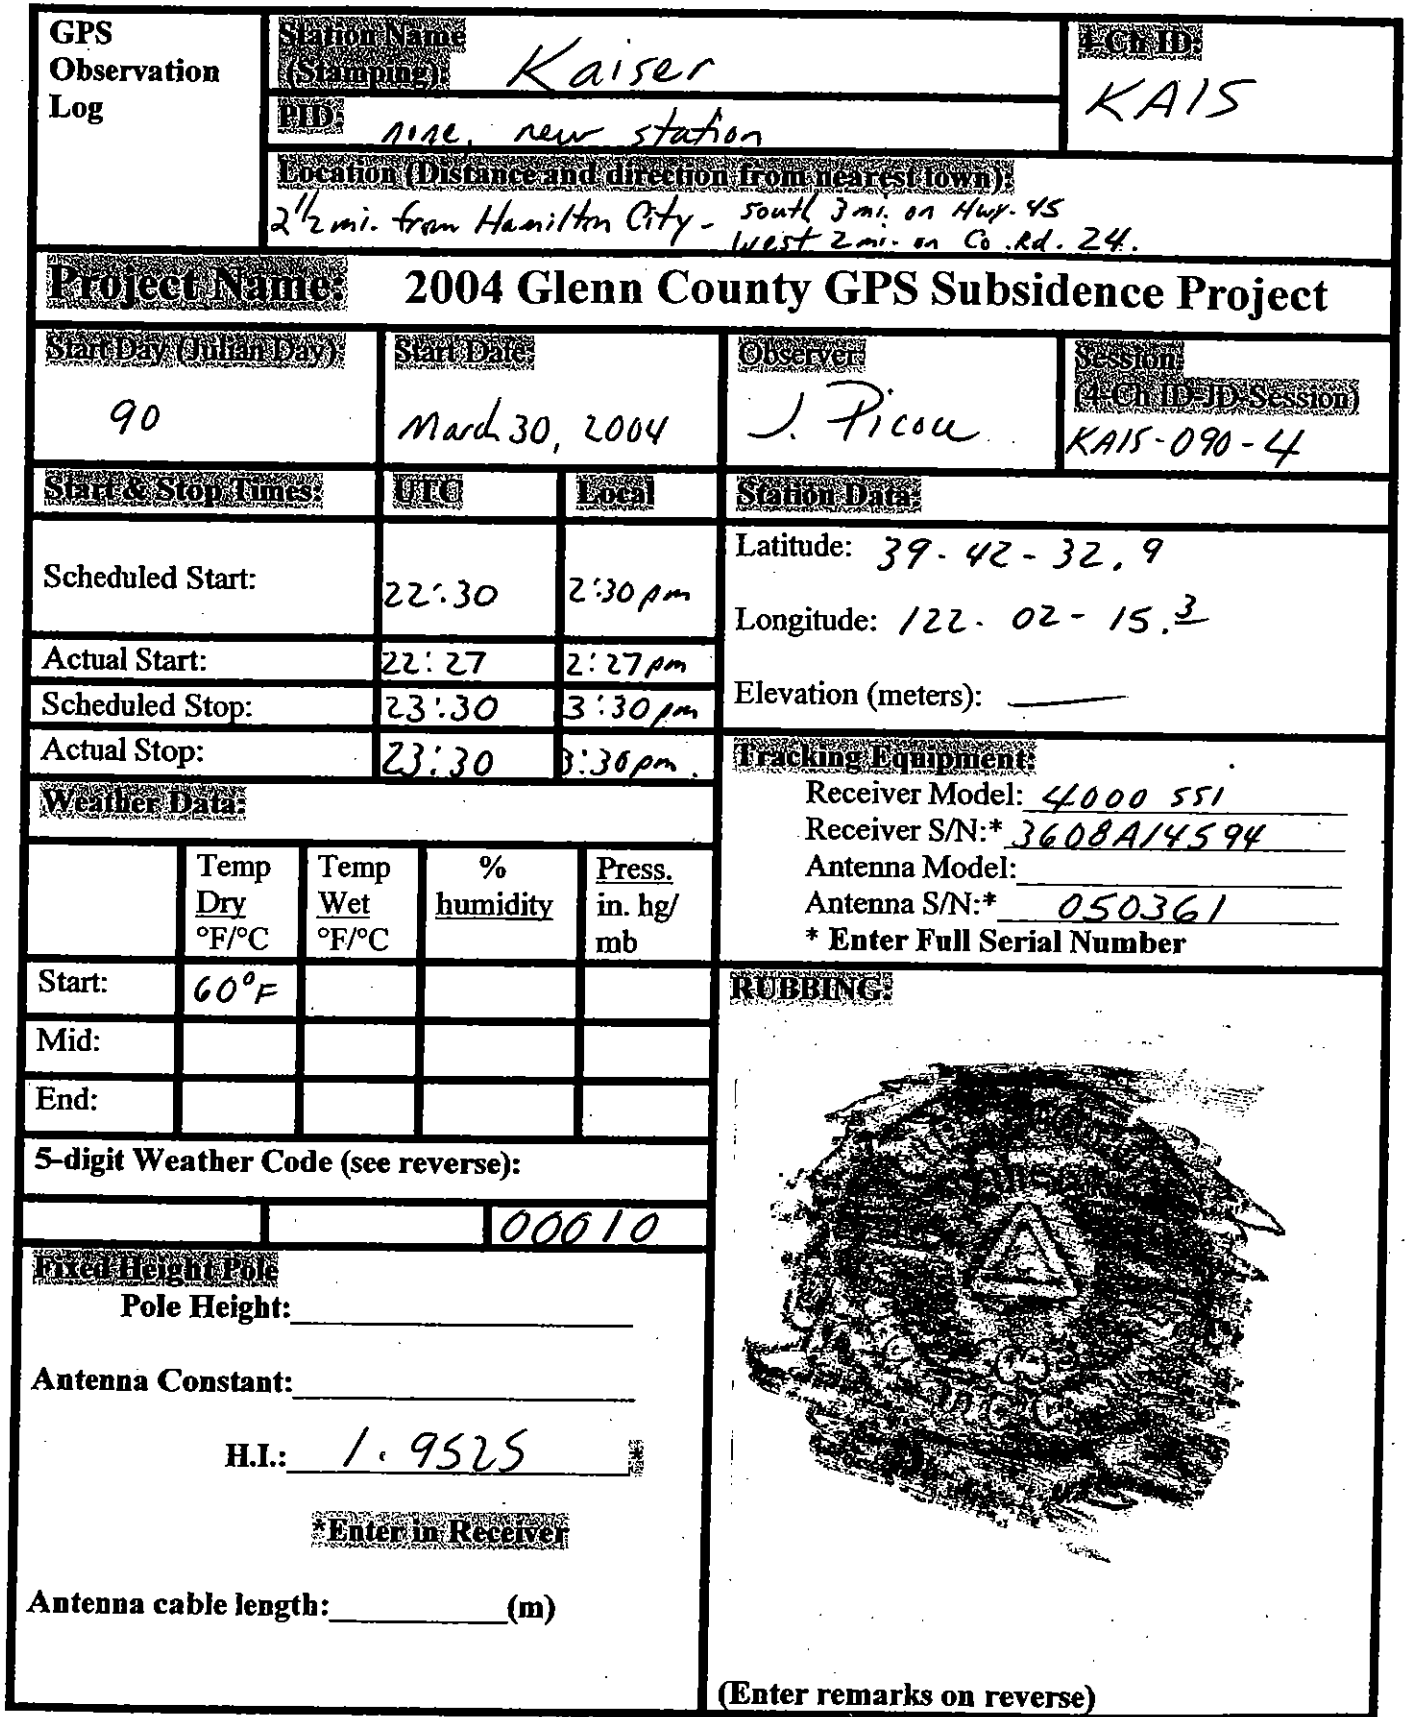 GPS
Observation
Log
Station Name
(Stamping): Kaiser
4-Ch ID:
KAIS
PID: none, new station
Location (Distance and direction from nearest town):
2 1/2 mi. from Hamilton City - south 3 mi. on Hwy. 45
west 2 mi. on Co. Rd. 24.
Project Name: 2004 Glenn County GPS Subsidence Project
Start Day (Julian Day):
90
Start Date:
March 30, 2004
Observer:
J. Picou
Session:
(4-Ch ID-JD-Session)
KAIS-090-4
Start & Stop Times: UTC Local
Scheduled Start: 22:30 2:30 pm
Actual Start: 22:27 2:27 pm
Scheduled Stop: 23:30 3:30 pm
Actual Stop: 23:30 3:30 pm.
Station Data:
Latitude: 39-42-32.9
Longitude: 122-02-15.3
Elevation (meters):
Tracking Equipment:
Receiver Model: 4000 SSI
Receiver S/N:* 3608A14594
Antenna Model:
Antenna S/N:* 050361
* Enter Full Serial Number
Weather Data:
Temp
Dry
°F/°C
Temp
Wet
°F/°C
%
humidity
Press.
in. hg/
mb
Start: 60°F
Mid:
End:
5-digit Weather Code (see reverse):
00010
Fixed Height Pole
Pole Height:
Antenna Constant:
H.I.: 1.9525 *
*Enter in Receiver
Antenna cable length: (m)
RUBBING:
(Enter remarks on reverse)